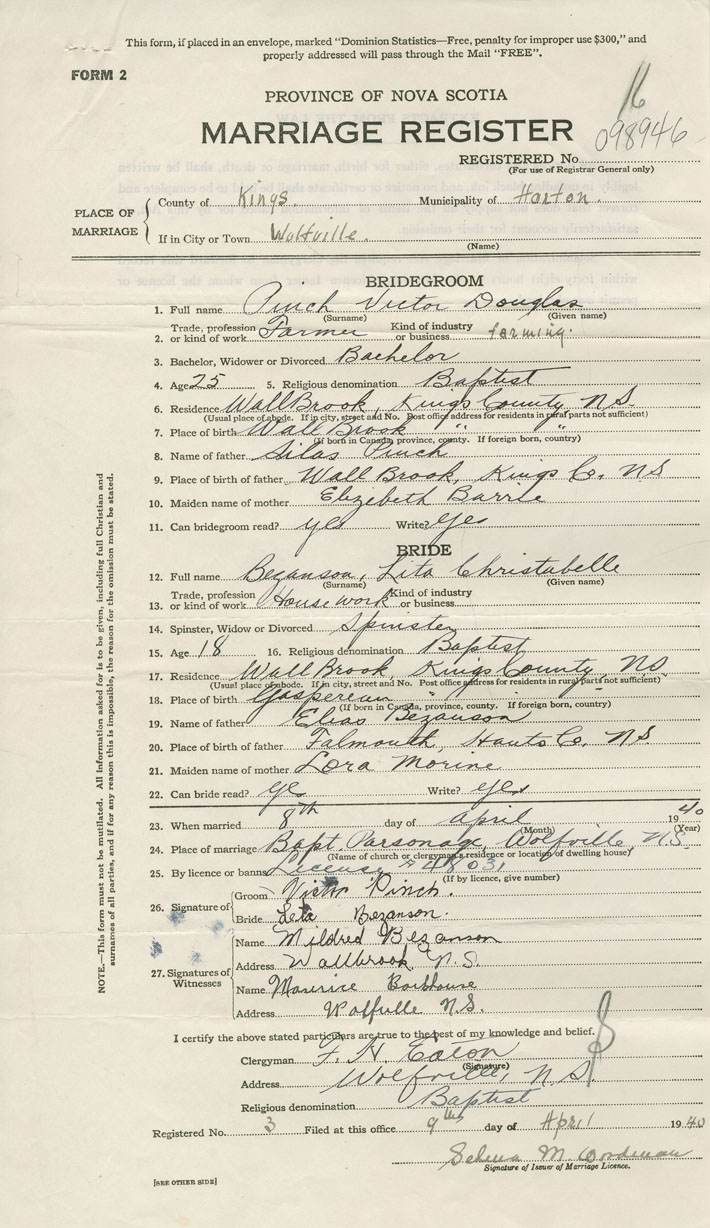 This form, if placed in an envelope, marked “Dominion Statistics—Free, penalty for improper use $300,” and
properly addressed will pass through the Mail “FREE”.
FORM 2
16
PROVINCE OF NOVA SCOTIA
MARRIAGE REGISTER
098946
REGISTERED No.
(For use of Registrar General only)
PLACE OF MARRIAGE
County of Kings. Municipality of Horton.
If in City or Town Wolfville.
(Name)
BRIDEGROOM
1. Full name Pinch Victor Douglas
(Surname) (Given name)
2. Trade, profession or kind of work Farmer Kind of industry or business farming.
3. Bachelor, Widower or Divorced Bachelor
4. Age 25 5. Religious denomination Baptist
6. Residence WallBrook, Kings County, N.S.
(Usual place of abode. If in city, street and No. Post office address for residents in rural parts not sufficient)
7. Place of birth Wall Brook " "
(If born in Canada, province, county. If foreign born, country)
8. Name of father Silas Pinch
9. Place of birth of father Wall Brook, Kings Co. NS
10. Maiden name of mother Elizebeth Barrie
11. Can bridegroom read? yes Write? yes
BRIDE
12. Full name Bezanson, Lita Christabelle
(Surname) (Given name)
13. Trade, profession or kind of work Housework Kind of industry or business
14. Spinster, Widow or Divorced Spinster
15. Age 18 16. Religious denomination Baptist
17. Residence WallBrook, Kings County, N.S.
(Usual place of abode. If in city, street and No. Post office address for residents in rural parts not sufficient)
18. Place of birth Gaspereau " "
(If born in Canada, province, county. If foreign born, country)
19. Name of father Elias Bezanson
20. Place of birth of father Falmouth, Hants Co. N.S.
21. Maiden name of mother Lora Morine
22. Can bride read? yes Write? yes
23. When married 8th day of April 1940
(Month) (Year)
24. Place of marriage Bapt. Parsonage, Wolfville, N.S.
(Name of church or clergyman's residence or location of dwelling house)
25. By licence or banns License # 48031
(If by licence, give number)
26. Signature of
Groom Victor Pinch.
Bride Leta Bezanson.
27. Signatures of Witnesses
Name Mildred Bezanson
Address Wallbrook N.S.
Name Maurice
Address Wolfville N.S.
I certify the above stated particulars are true to the best of my knowledge and belief.
Clergyman F. H. Eaton
(Signature)
Address Wolfville, N.S.
Religious denomination Baptist
Registered No. 3 Filed at this office 9th day of April 1940
M. Woodman
Signature of Issuer of Marriage Licence.
[SEE OTHER SIDE]
NOTE.—This form must not be mutilated. All information asked for is to be given, including full Christian and
surnames of all parties, and if for any reason this is impossible, the reason for the omission must be stated.